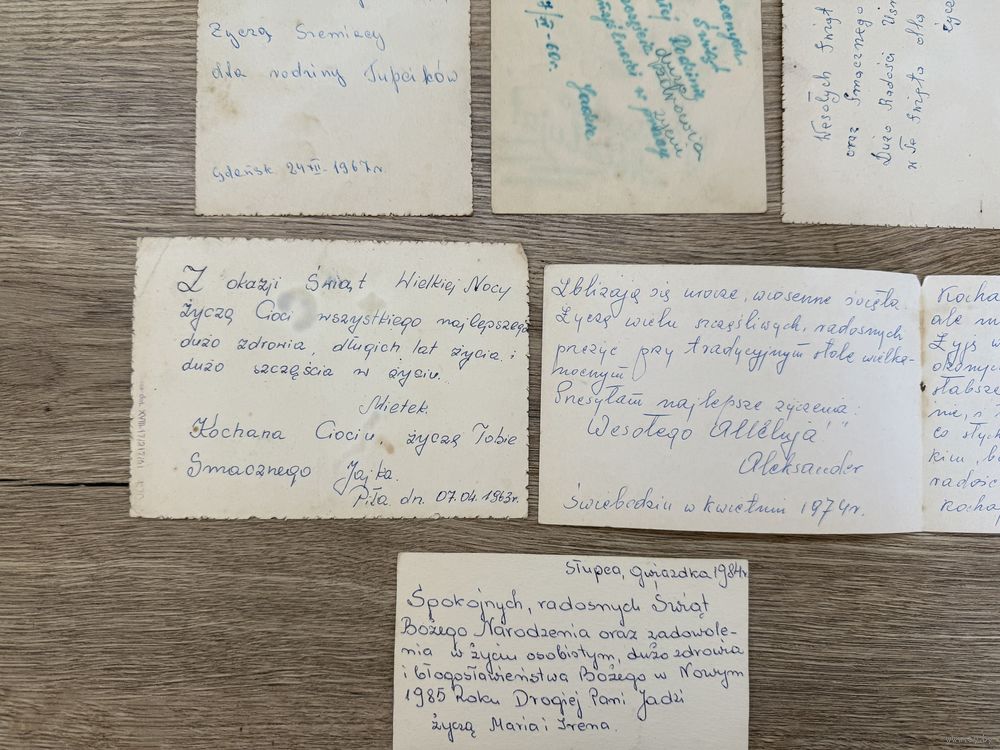 życzą Sremiacy
dla rodziny Tupcików
Gdańsk 24 XII - 1967 r.
Świąt
Rodzinie
zdrowia
Jadzia
Wesołych Świąt
oraz Smacznego
Dużo Radości
w Te Święta dla
życzą
Z okazji Świąt Wielkiej Nocy
życzą Cioci wszystkiego najlepszego
dużo zdrowia, długich lat życia i
dużo szczęścia w życiu.
Mietek.
Kochana Ciociu życzą Tobie
Smacznego Jajka.
Piła. dn. 07.04.1963r.
Zbliżają się urocze, wiosenne święta.
Życzę wielu szczęśliwych, radosnych
przeżyć przy tradycyjnym stole wielka-
nocnym
Przesyłam najlepsze życzenia:
Wesołego Alleluja!"
Aleksander
Świebodzin w kwietniu 1974r.
Kocha
ale m
Żyję w
słabsze
nie, i
co słych
kim, b
radość
Kocha
Słupca, Gwiazdka 1984r
Spokojnych, radosnych Świąt
Bożego Narodzenia oraz zadowole-
nia w życiu osobistym, dużo zdrowia
i błogosławieństwa Bożego w Nowym
1985 Roku Drogiej Pani Jadzi
życzą Maria i Irena.